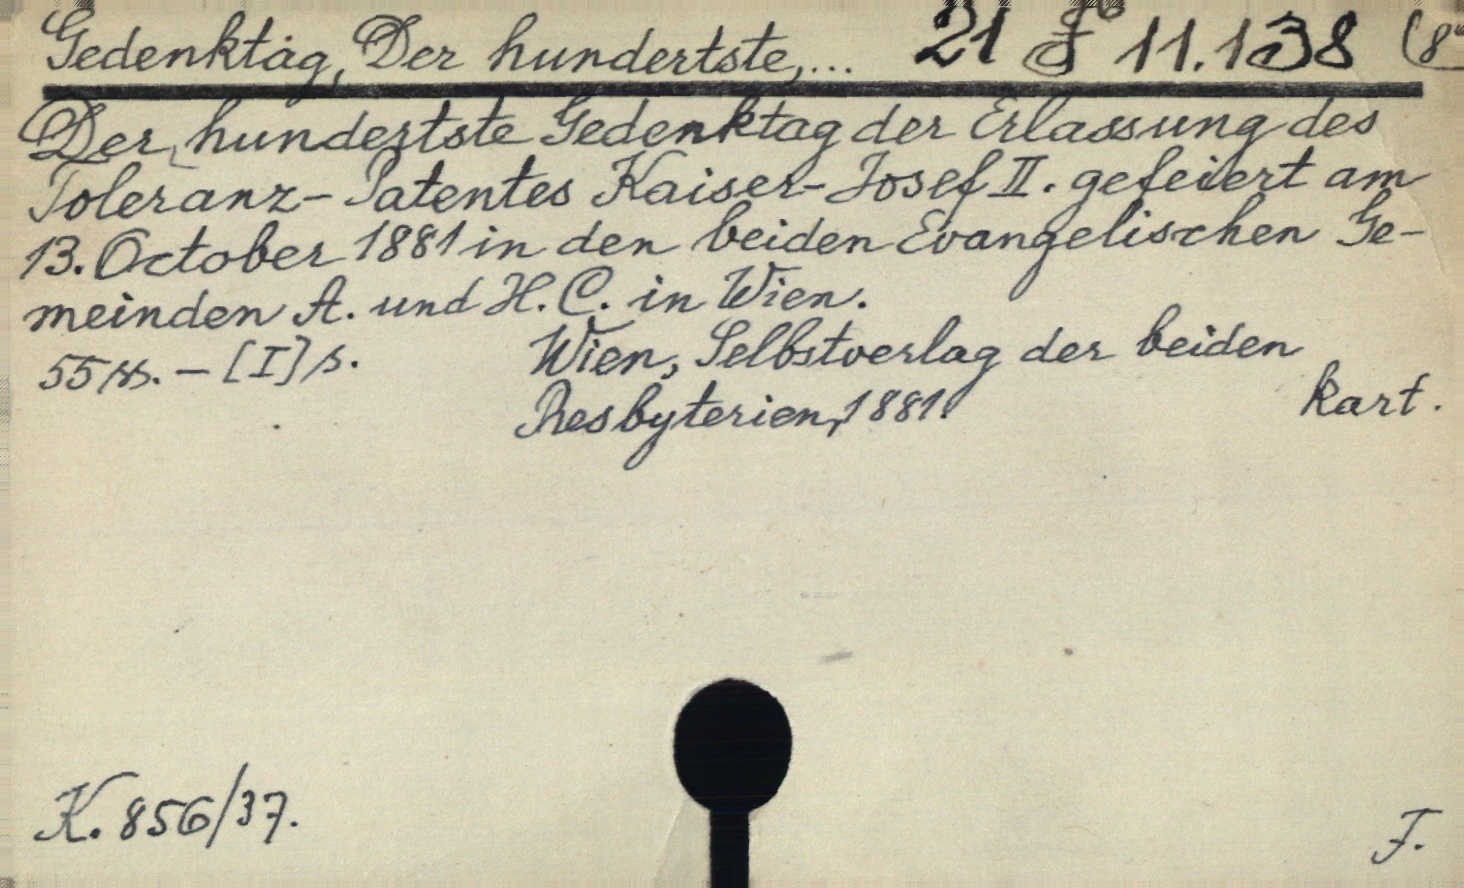 Gedenktag, Der hundertste,... 21 11.138 (8°
Der hundertste Gedenktag der Erlassung des
Toleranz-Patentes Kaiser-Josef II. gefeiert am
13. October 1881 in den beiden Evangelischen Ge-
meinden A. und H.C. in Wien.
55 SS. - [I] S. Wien, Selbstverlag der beiden
Presbyterien, 1881. kart.
K. 856/37. F.